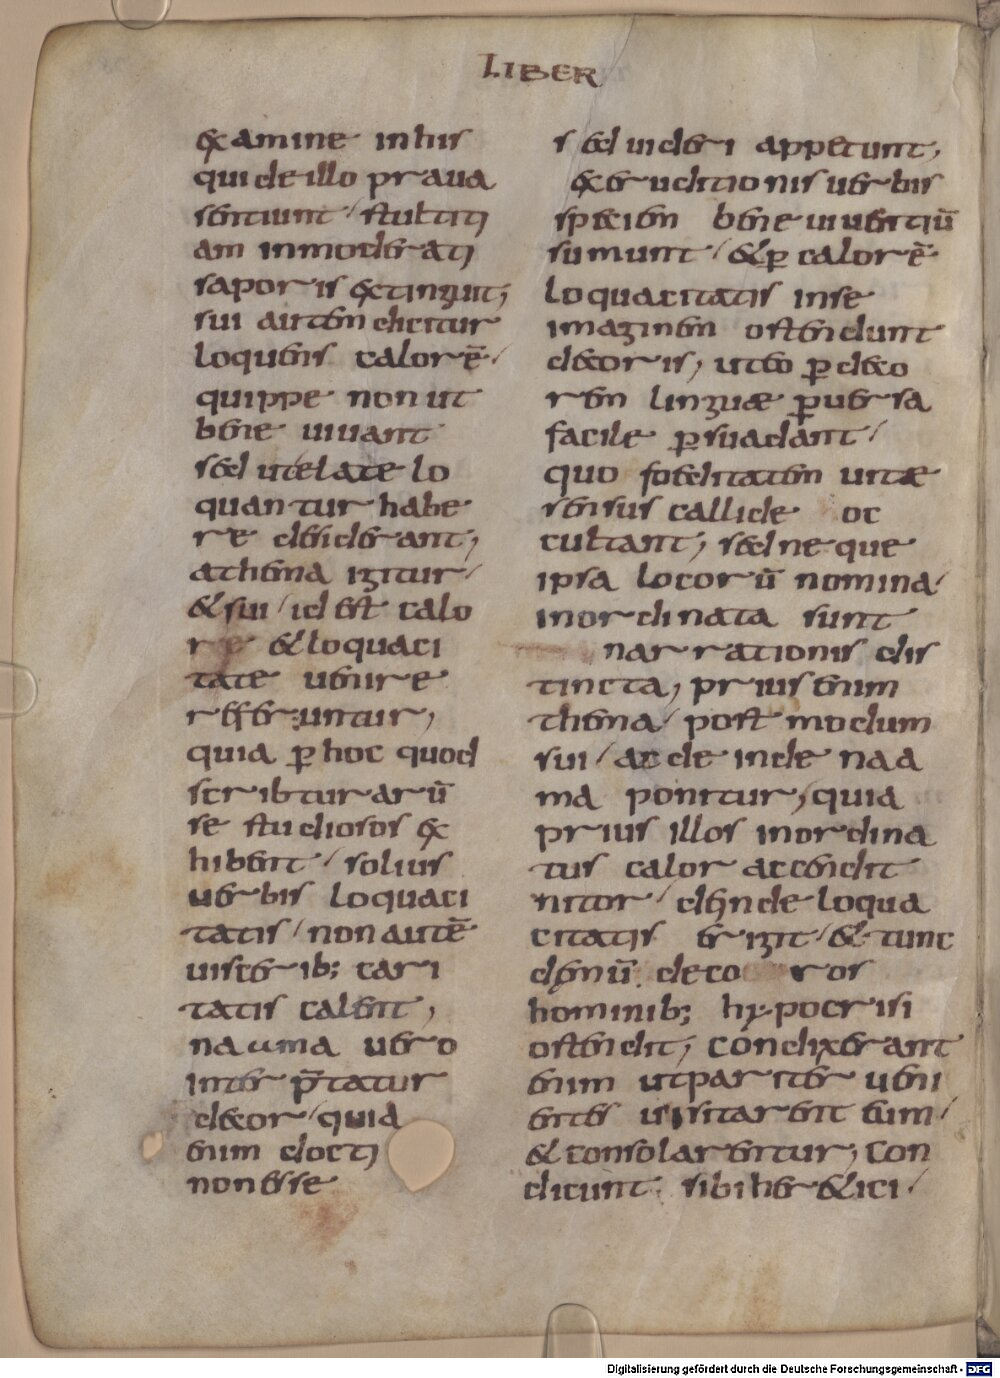 LIBER
examine in his
qui de illo praua
sentiunt / stultiti
am inmoderati
saporis extinguit;
sui autem dicitur
loquens calorē /
quippe non ut
bene uiuant
sed ut elate lo
quantur habe
re desiderant;
athema igitur /
& sui / id est calo
re & loquaci
tate uenire
referuntur;
quia p̱ hoc quod
scribturarū
se studiosos ex
hibent / solius
uerbis loquaci
tatis / non autē
uiscerib; cari
tatis calent;
naama uero
inter p̄tatur
decor / quia
enim docti
non esse
sed uideri appetunt;
& eruditionis uerbis
speciem bene uiuentiū
sumunt / & p̱ calorē
loquacitatis inse
imaginem ostendunt
decoris; ut eo p̱ deco
rem linguæ p̱uersa
facile p̱suadant /
quo foeditatem uitæ
sensus callide oc
cultant; sed neque
ipsa locorū nomina /
inordinata sunt
narrationis dis
tincta; prius enim
themna / post modum
sui / ac deinde naa
ma ponitur; quia
prius illos inordina
tus calor accendit
nitor / dein de loqua
citatis erigit / & tunc
demū decoros
hominib; hypocrisi
ostendit; Condixerant
enim ut pariter ueni
entes uisitarent eum /
& consolarentur; Con
dicunt sibi heretici /
Digitalisierung gefördert durch die Deutsche Forschungsgemeinschaft - DFG